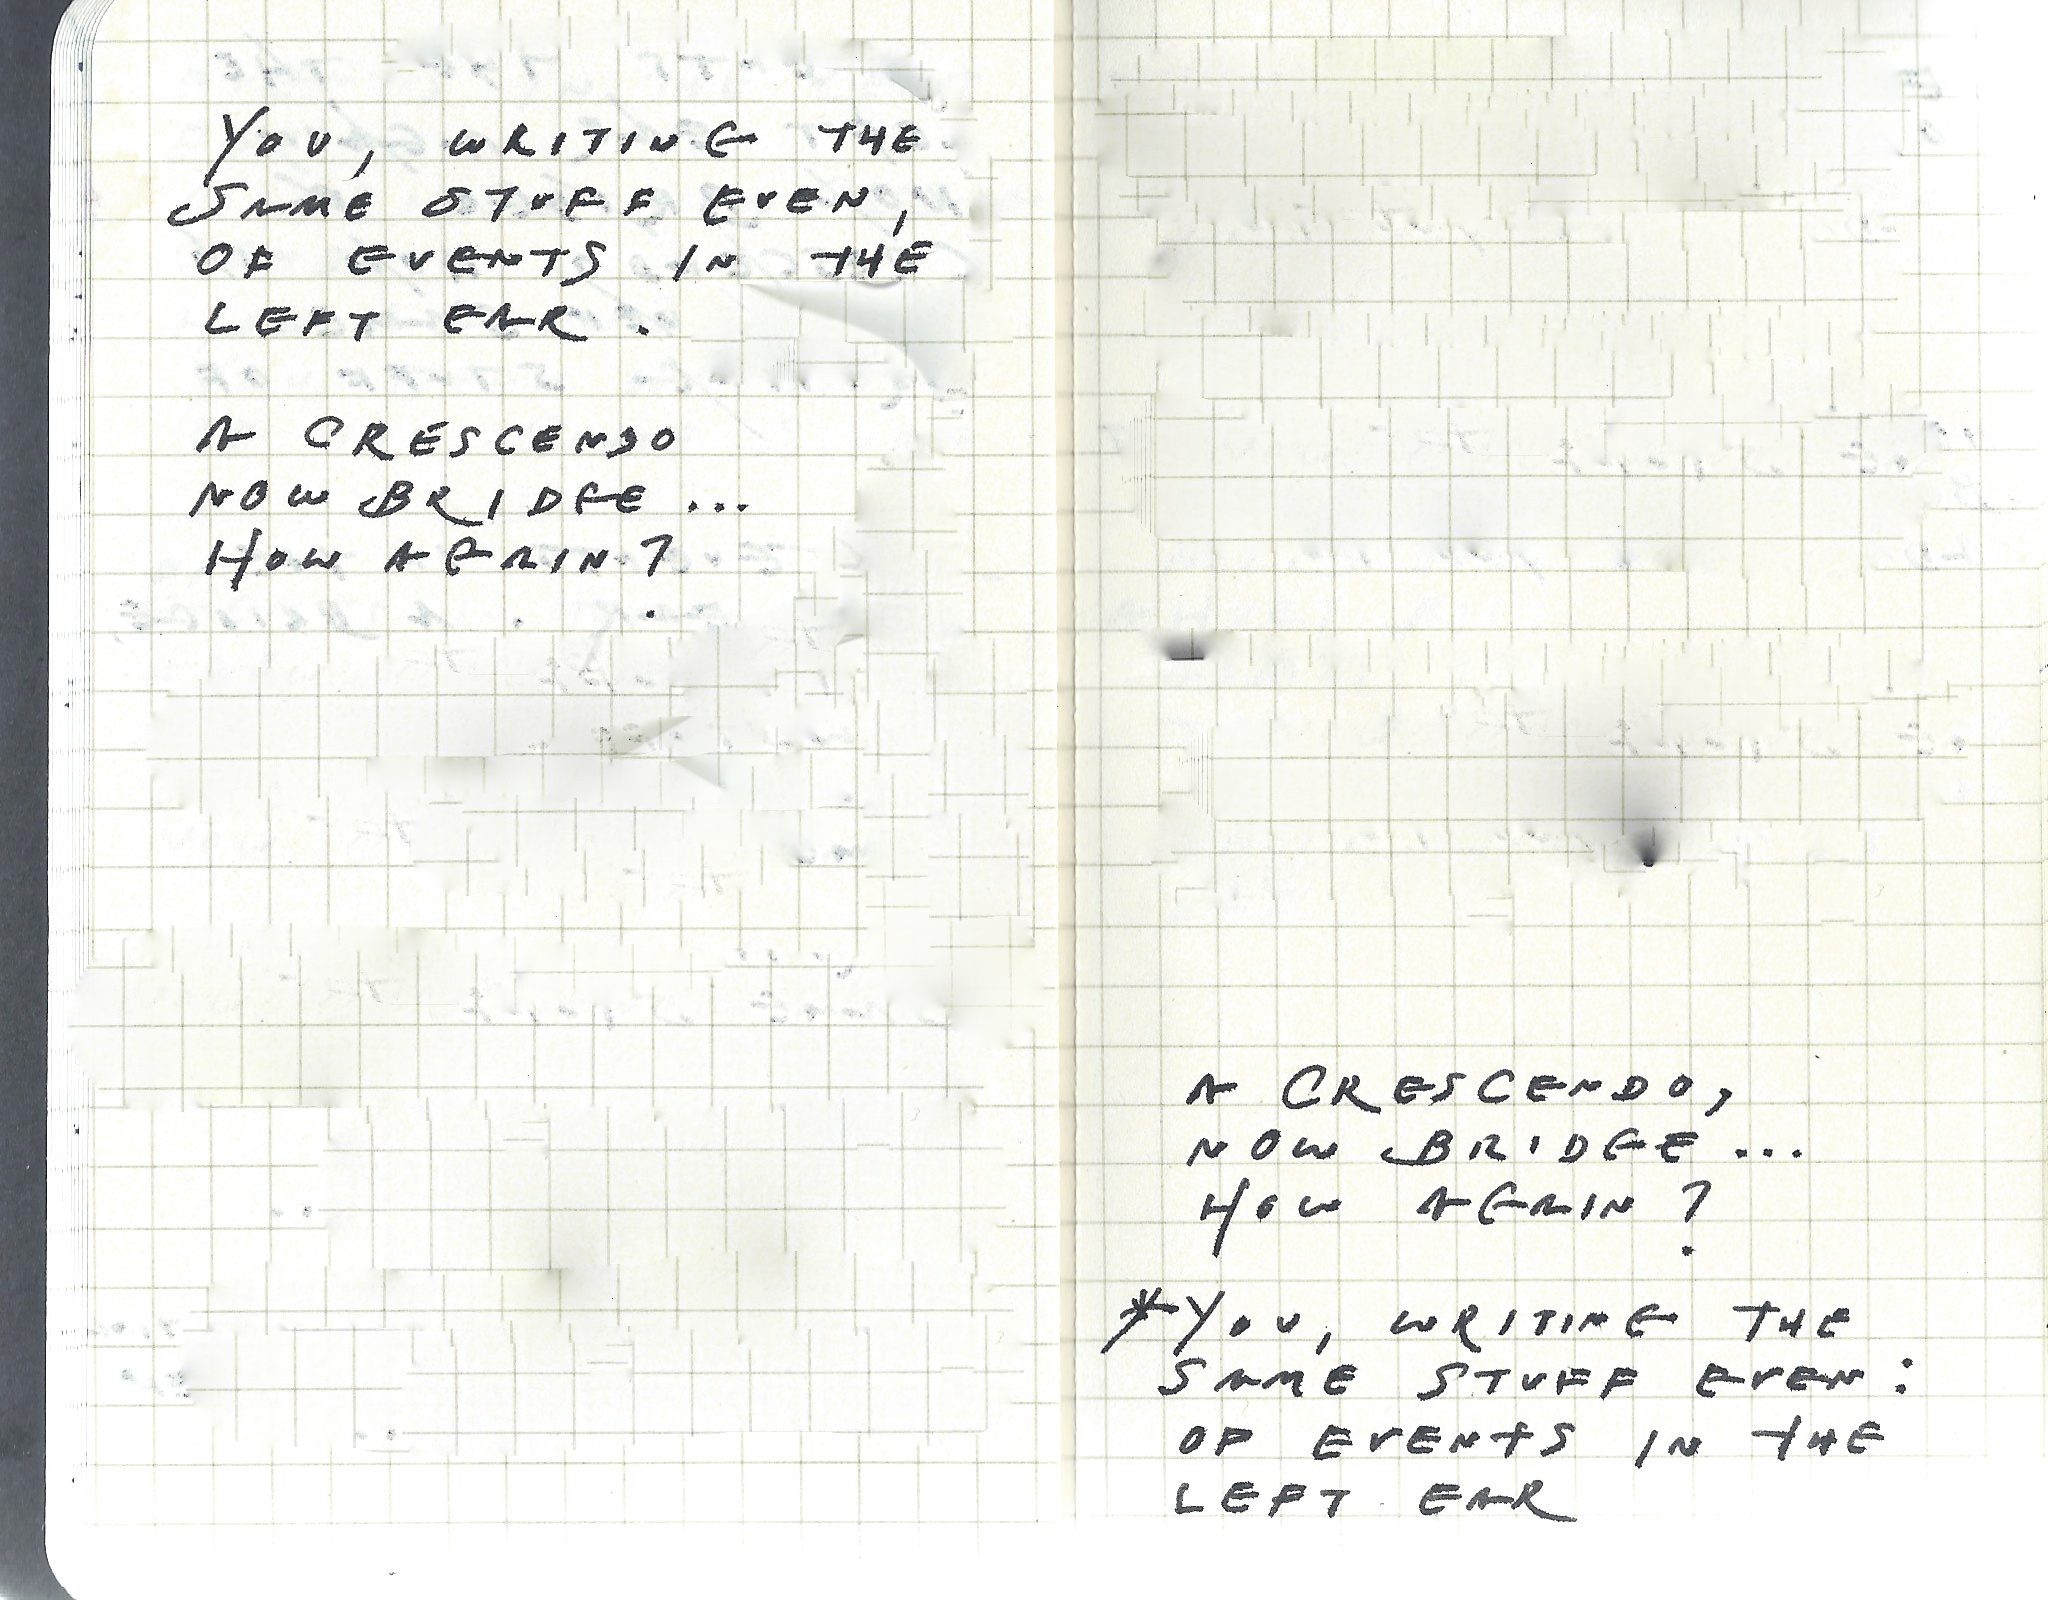 YOU, WRITING THE
SAME STUFF EVEN,
OF EVENTS IN THE
LEFT EAR.
A CRESCENDO
NOW BRIDGE...
HOW AGAIN?
A CRESCENDO,
NOW BRIDGE...
HOW AGAIN?
*YOU, WRITING THE
SAME STUFF EVEN:
OF EVENTS IN THE
LEFT EAR